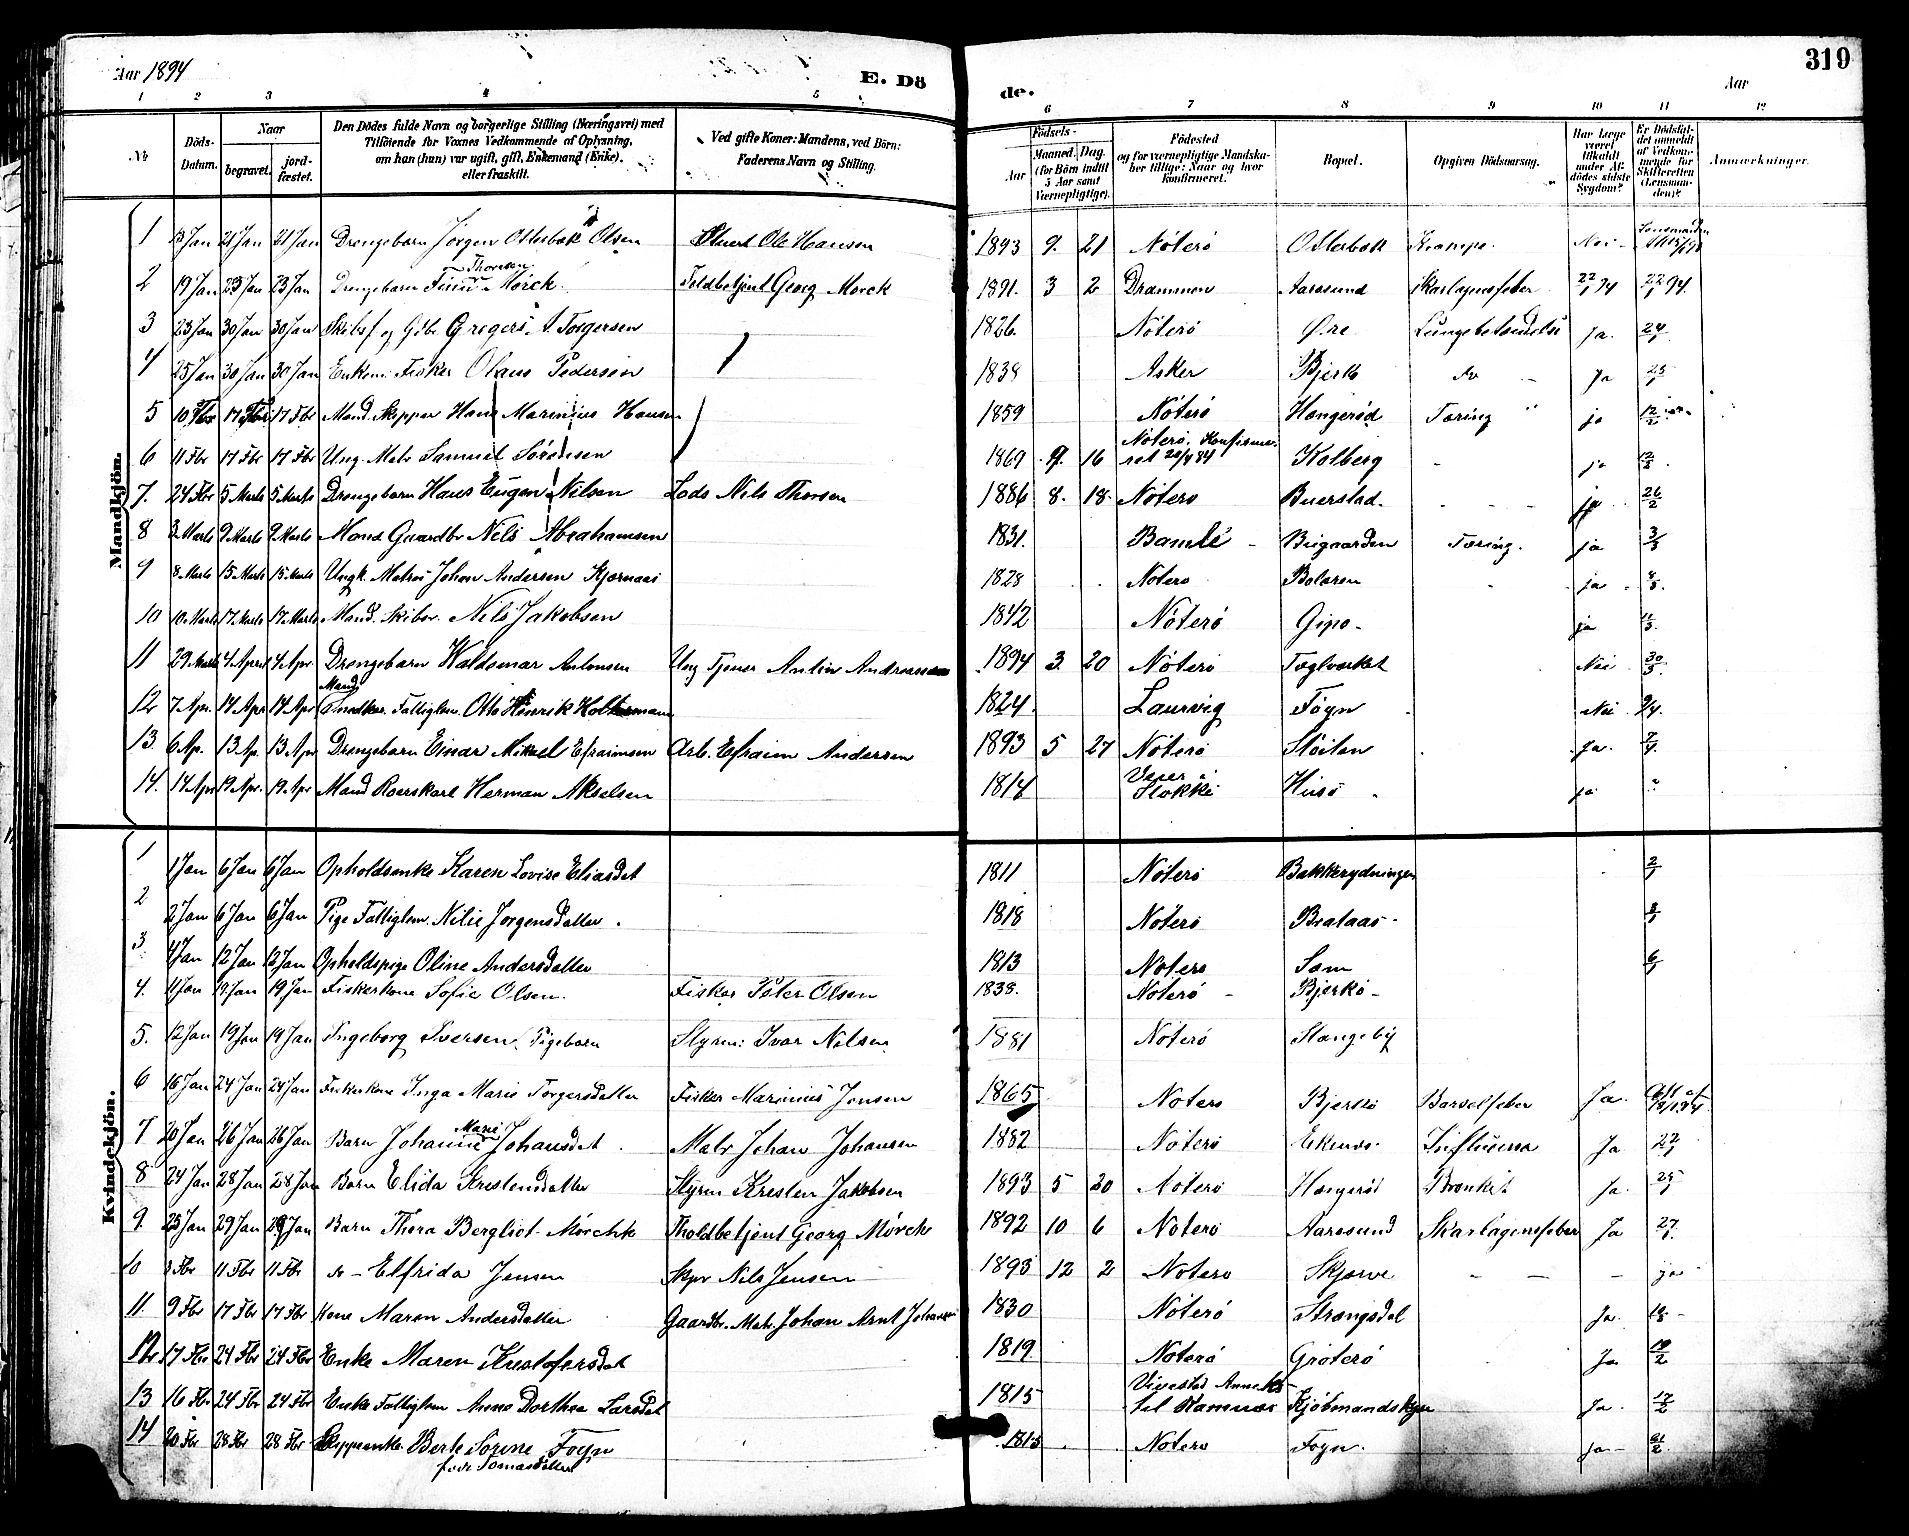 Aar 1894
E. Dö de.
319
Aar
1 2 3 4 5 6 7 8 9 10 11 12
No
Döds-Datum.
Naar
begravet.
jord-fæstet.
Den Dödes fulde Navn og borgerlige Stilling (Næringsvei) med
Tilföiende for Voxnes Vedkommende af Oplysning,
om han (hun) var ugift, gift, Enkemand (Enke).
eller fraskilt.
Ved gifte Koner: Mandens, ved Börn:
Faderens Navn og Stilling.
Födsels-
Aar
Maaned. Dag.
(for Börn indtil
5 Aar samt
Værnepligtige).
Födested
og for værnepligtige Mandska-
ber tillige: Naar og hvor
konfirmeret.
Bopæl.
Opgiven Dödsaarsag.
Har Læge
været
tilkaldt
under Af-
dödes sidste
Sygdom?
Er Dödsfal-
det anmeldt
af Vedkom-
mende for
Skifteretten
(Lensman-
den)?
Anmærkninger.
Mandkjön.
1 13 Jan 21 Jan 21 Jan Drengebarn Jörgen Osterbæk Olsen Stuert Ole Hansen 1893 9. 21 Nöterö Osterbæk Krampe. Nei
2 19 Jan 23 Jan 23 Jan Drengebarn Finn Thoresen Mörck. Toldbetjent Georg Mörck 1891. 3 2 Drammen Aarosund Skarlagensfeber 22/1 94 22/1 94.
3 23 Jan 30 Jan 30 Jan Skibsf og Gdbr. Gregers A. Torgersen 1826. Nöterö Öre Lungebetændelse ja. 24/1
4 25 Jan 30 Jan 30 Jan Enkem. Fisker Olaus Pedersen 1838 Asker Bjerkö Do - Ja 25/1
5 10 Fbr 17 Fbr 17 Fbr Mand. Skipper Hans Marinius Hansen 1859 Nöterö Hængeröd Tæring ja 12/2
6 11 Fbr 17 Fbr 17 Fbr Ung. Matr Samuel Sörensen 1869 9. 16 Nöterö. Konfirme-
ret 20/4 84 Kolberg ja 12/2
7. 24 Fbr 5 Marts 5 Marts Drengebarn Hans Eugen Nilsen Lods Nils Thorsen 1886 8. 18. Nöterö Buerstad. ja 26/2
8 3 Marts 9 Marts 9 Marts Mand Gaardbr Nils Abrahamsen 1831. Bamle Brigaarden Tæring. ja 3/3
9 8 Marts 15 Marts 15 Marts Ungk. Matros Johan Andersen Kjærnaas 1828 Nöterö Bolæren ja 8/3.
10 10 Marts 17 Marts 17 Marts Mand. Skibsr. Nils Jakobsen 1842 Nöterö Gipö ja 11/3.
11 29 Marts 4 April 4 Apr Drengebarn Waldemar Antonsen Ung Tjener Anton Andreassen 1894 3. 20 Nöterö Teglverket Nei 30/3.
12 7 Apr. 14 Apr 14 Apr Mand Snedker. Fattiglem. Otto Henrik Holtermann 1824. Laurvig Föyn Nei 9/4.
13. 6 Ap. 13 Ap. 13 Apr Drengebarn Einar Mikael Efraimsen Arb. Efraim Andersen 1893 5 27 Nöterö Stöiten Ja. 7/4.
14. 14 Apr 19 Apr. 19 Apr Mand Roerskarl Herman Akselsen 1814 Veier i
Stokke Husö ja
Kvindekjön.
1 1 Jan 6 Jan 6 Jan Opholdsenke Karen Lovise Eliasdat 1811 Nöterö Bakkerydningen 2/1
2 2 Jan 6 Jan 6 Jan Pige Fattiglem. Nilie Jörgensdatter. 1818 Nöterö Brataas 3/1
3. 4 Jan 12 Jan 12 Jan Opholdspige Oline Andersdatter 1813 Nöterö Sem 6/1
4. 11 Jan 19 Jan 19 Jan Fiskerkone Sofie Olsen. Fisker Peter Olsen 1838. Nöterö - Bjerkö -
5. 12 Jan 19 Jan 19 Jan Ingeborg Iversen. Pigebarn Styrm: Ivar Nilsen 1881 Nöterö Slangeby
6 16 Jan 24 Jan 24 Jan Fiskerkone Inga Marie Torgersdatter Fisker Marinius Jensen 1865 Nöterö Bjerkö Barselfeber Ja.
7 20 Jan 26 Jan 26 Jan Barn Johanne Marie Johansdat. Matr Johan Johansen 1882 Nöterö Ekenæs. Influenza Ja 22/1
8 24 Jan 28 Jan 28 Jan Barn Elida Kristensdatter Styrm Kristen Jakobsen 1893 5 20 Nöterö Hængeröd Bronkit Ja. 25/1
9. 25 Jan 29 Jan 29 Jan Barn Thora Bergliot Mörchk Tholdbetjent Georg Mörck 1892 10 6 Nöterö Aarosund Skarlagensfeber Ja 27/1.
10 3 Fbr 11 Fbr 11 Fbr do - Elfrida Jensen Skpr Nils Jensen 1893 12 2 Nöterö Skjerve - - - ja
11. 9 Fbr 17 Fbr 17 Fbr Kone Maren Andersdatter Gaardbr. Matr. Johan Arnt Johansen 1830 Nöterö Strengsdal Ja.
12 17 Fbr 24 Fbr 24 Fbr Enke Maren Kristofersdat 1819. Nöterö Gröterö Ja 19/2
13 16 Fbr 24 Fbr 24 Fbr Enke Fattiglem Anne Dorthea Larsdat 1815 Vivestad Anneks
til Ramnæs Kjöbmandskjær Ja. 17/2
14 20 Fbr 28 Fbr 28 Fbr Skipperenke. Berte Sorine Foyn
født Tomasdatter 1813 Nöterö Foyn. ja - 21/2